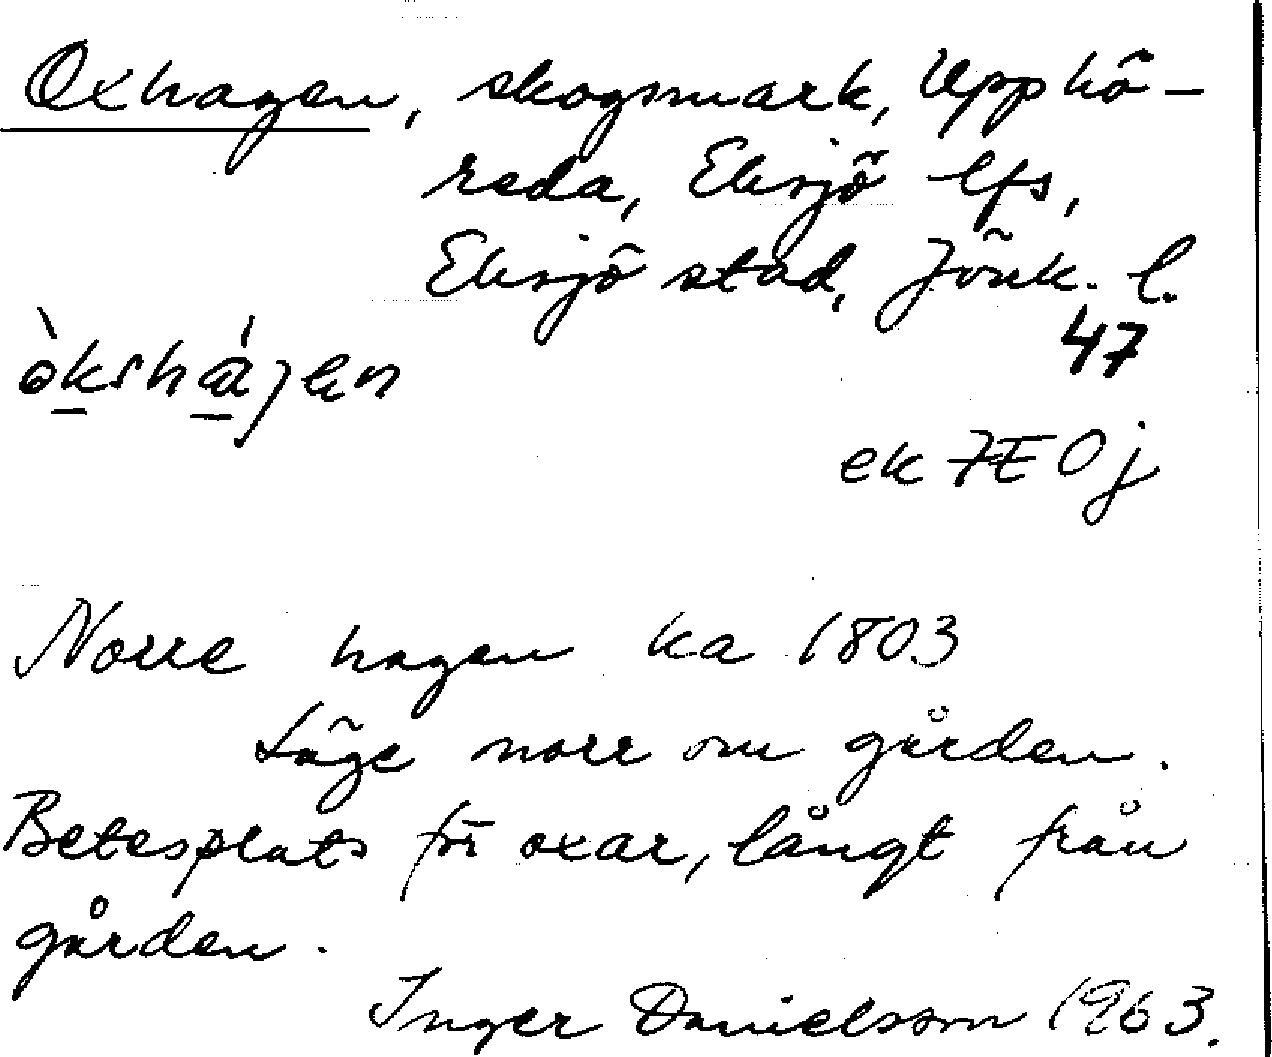 Oxhagen, skogsmark, Upphö-
reda, Eksjö lfs,
Eksjö stad, Jönk. l.
47
òkshá̱gen
ek 7E0j
Norre hagen ka 1803
Läge norr om gården.
Betesplats för oxar, långt från
gården.
Inger Danielsson 1963.